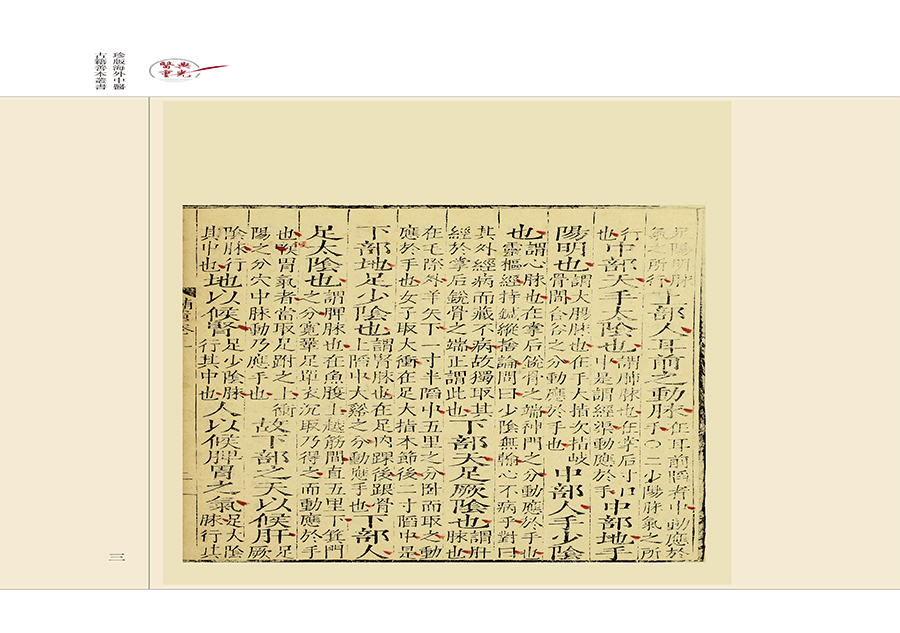 珍版海外中醫
古籍善本叢書
醫典重光
足陽明脉
氣之所行
上部人耳前之動脉
在耳前陷者中動應於
手〇二少陽脉氣之所
行
也
中部天手太陰也
謂肺脉也在掌后寸口
中是謂經渠動應於手
中部地手
陽明也
謂大腸脉也在手大指次指歧
骨間合谷之分動應於手也
中部人手少陰
也
謂心脉也在掌后銳骨之端神門之分動應於手也
靈樞經持鍼縱捨論問曰少陰無輸心不病乎對曰
其外經病而藏不病故獨取其
經於掌后銳骨之端正謂此也
下部天足厥陰也
謂肝
脉也
在毛際外羊矢下一寸半陷中五里之分卧而取之動
應於手也女子取大衝在足大指本節後二寸陷中是
下部地足少陰也
謂腎脉也在足内踝後跟骨
上陷中大谿之分動應手也
下部人
足太陰也
謂脾脉也在魚腹上越筋間直五里下箕門
之分寛鞏足單衣沉取乃得之而動應於手
也候胃氣者當取足跗之上衝
陽之分穴中脉動乃應手也
故下部之天以候肝
足
厥
陰脉行
其中也
地以候腎
足少陰脉
行其中也
人以候脾胃之氣
足太陰
脉行其
三